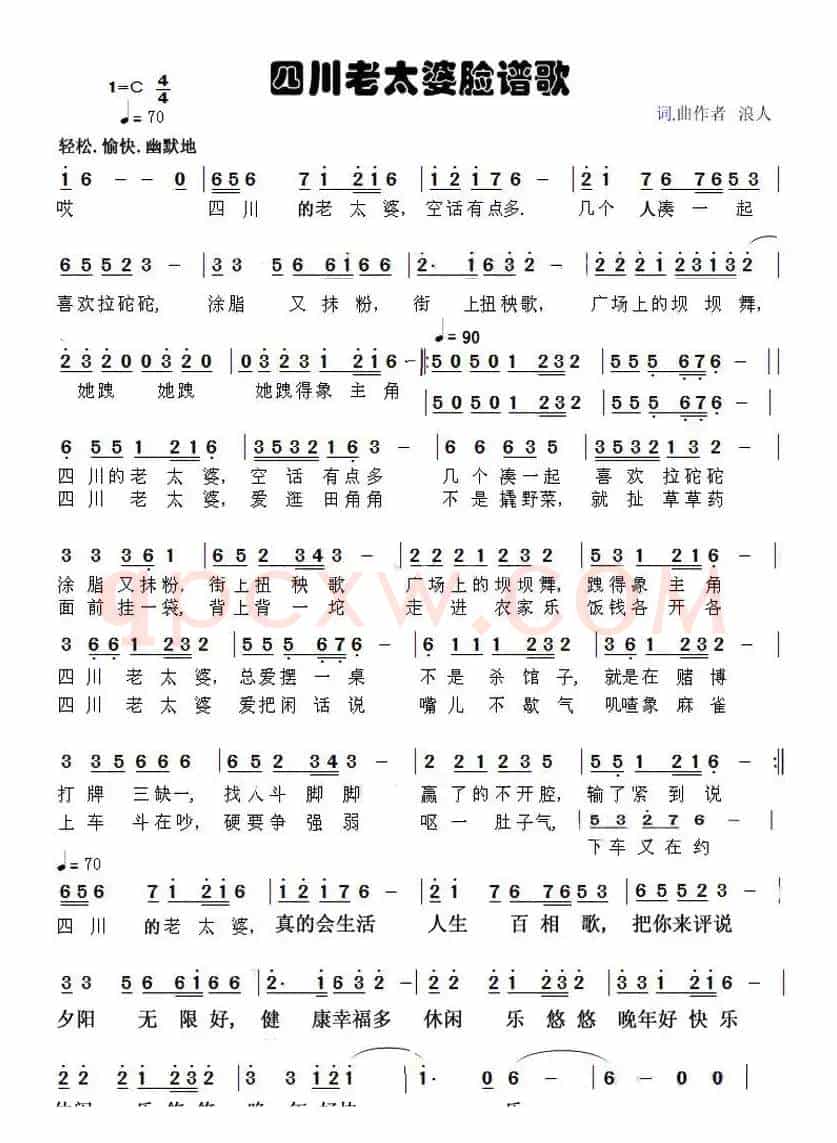 四川老太婆脸谱歌
1=C 4/4
♩= 70
词.曲作者 浪人
轻松. 愉快. 幽默地
i 6 - - 0 | 6 5 6 7 i 2 i 6 | i 2 i 7 6 - | 2 i 7 6 7 6 5 3 |
哎 四 川 的老 太 婆, 空 话 有 点 多. 几 个 人凑 一 起
6 5 5 2 3 - | 3 3 5 6 6 i 6 6 | 2· i 6 3 2 - | 2 2 2 i 2 3 i 3 2 |
喜欢拉砣砣, 涂脂 又 抹 粉, 街 上扭秧歌, 广场上的坝坝舞,
♩= 90
2 3 2 0 0 3 2 0 | 0 3 2 3 i 2 i 6 - :‖: 5 0 5 0 1 2 3 2 | 5 5 5 6 7 6 - |
她 跩 她跩 她跩得象 主 角
5 0 5 0 1 2 3 2 | 5 5 5 6 7 6 - |
6 5 5 1 2 1 6 | 3 5 3 2 1 6 - | 6 6 6 3 5 | 3 5 3 2 1 6 - |
四 川 的 老 太 婆, 空 话 有点多 几 个 凑一起 喜 欢 拉砣砣
四 川 老 太 婆, 爱 逛 田角角 不 是 撬野菜, 就 扯 草草药
3 3 3 6 1 | 6 5 2 3 4 3 - | 2 2 2 1 2 3 2 | 5 5 1 2 1 6 - |
涂 脂 又抹粉, 街上扭 秧 歌 广场上的坝坝舞, 跩得象 主 角
面 前 挂一袋, 背上背 一 坨 走 进 农家乐 饭钱各 开 各
qpcxw.com
3 6 6 1 2 3 2 | 5 5 5 6 7 6 - | 6 1 1 1 2 3 2 | 3 6 1 2 1 6 - |
四 川 老 太 婆, 总爱摆 一 桌 不 是 杀 馆 子, 就是在 赌 博
四 川 老 太 婆 爱把闲 话 说 嘴 儿 不 歇 气 叽喳象 麻 雀
3 3 5 6 6 6 | 6 5 2 3 4 3 - | 2 2 2 1 2 3 5 | 5 5 1 2 1 6 - :‖
打 牌 三缺一, 找人斗 脚 脚 赢 了的不开腔, 输了紧 到 说
上 车 斗在吵, 硬要争 强 弱 呕 一 肚子气, 5 3 2 7 6 -
下 车 又 在 约
♩= 70
6 5 6 7 i 2 i 6 | i 2 i 7 6 - | 2 i 7 6 7 6 5 3 | 6 5 5 2 3 - |
四 川 的老 太 婆, 真的会生活 人生 百 相 歌, 把你来评说
3 3 5 6 6 i 6 6 | 2· i 6 3 2 - | 2 2 2 i 2 3 2 | 3 2 3 i 2 - |
夕阳 无 限 好, 健 康幸福多 休闲 乐 悠 悠 晚年好 快 乐
2 2 2 i 2 3 2 | 3 2 3 i 2 - | i· 0 2 2 6 - 0 0 |